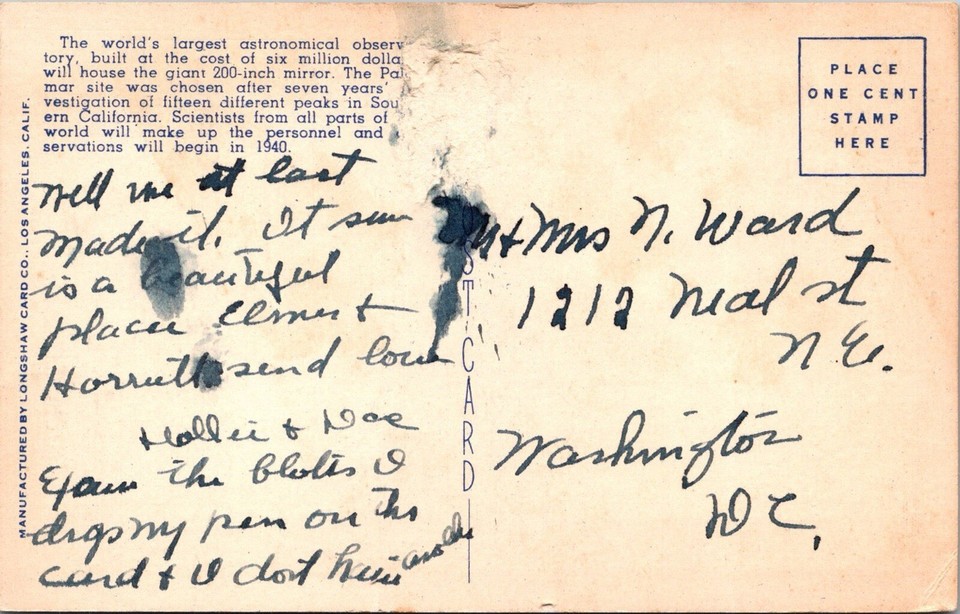 The world's largest astronomical observ
tory, built at the cost of six million dolla
will house the giant 200-inch mirror. The Pal
mar site was chosen after seven years'
vestigation of fifteen different peaks in Sou
ern California. Scientists from all parts of
world will make up the personnel and
servations will begin in 1940.
MANUFACTURED BY LONGSHAW CARD CO., LOS ANGELES, CALIF.
PLACE
ONE CENT
STAMP
HERE
ST CARD
Well we at last
made it. It sure
is a beautiful
place Elmer &
send love
Hollie & Doc
the blots I
my pen on this
card & I dont have another
Mr & Mrs N. Ward
1212 Neal st
N E.
Washington
D C,